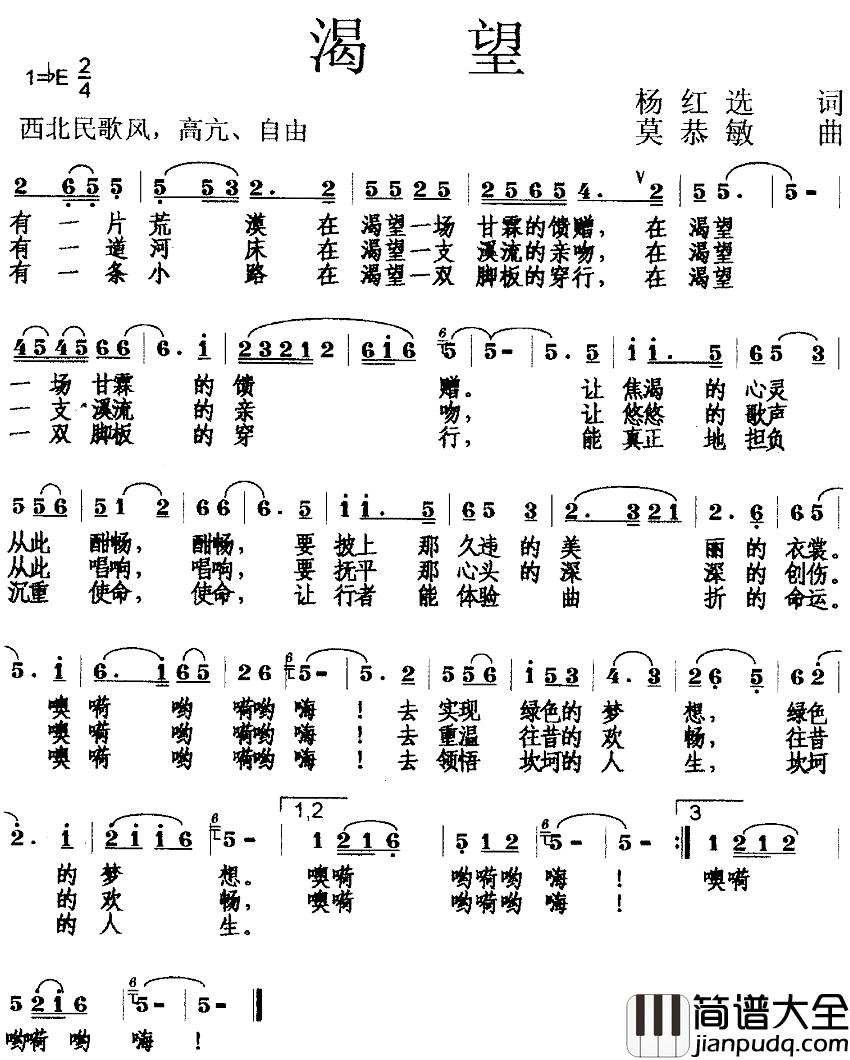 渴 望
1=♭E 2/4
杨 红 选 词
西北民歌风，高亢、自由
莫 恭 敏 曲
2 6 5 5 | 5 5 3 2. 2 | 5 5 2 5 | 2 5 6 5 4. ∨ 2 | 5 5. | 5 -
有 一 片 荒 漠 在 渴望一场 甘霖的馈赠，在 渴望
有 一 道 河 床 在 渴望一支 溪流的亲吻，在 渴望
有 一 条 小 路 在 渴望一双 脚板的穿行，在 渴望
4 5 4 5 6 6 | 6. 1 | 2 3 2 1 2 | 6 1 6 | 6 5 | 5 - | 5. 5 | 1 1. 5 | 6 5 3
一 场 甘霖 的 馈 赠。 让 焦渴 的 心灵
一 支 溪流 的 亲 吻， 让 悠悠 的 歌声
一 双 脚板 的 穿 行， 能 真正 地 担负
5 5 6 | 5 1 2 | 6 6 | 6. 5 | 1 1. 5 | 6 5 3 | 2. 3 2 1 | 2. 6 | 6 5
从此 酣畅， 酣畅， 要 披上 那 久违 的 美 丽 的 衣裳。
从此 唱响， 唱响， 要 抚平 那 心头 的 深 深 的 创伤。
沉重 使命， 使命， 让 行者 能 体验 曲 折 的 命运。
5. 1 | 6. 1 6 5 | 2 6 | 6 5 - | 5. 2 | 5 5 6 | 1 5 3 | 4. 3 | 2 6 5 | 6 2
噢 嗬 哟 嗬哟 嗨 ！ 去 实现 绿色的 梦 想， 绿色
噢 嗬 哟 嗬哟 嗨 ！ 去 重温 往昔的 欢 畅， 往昔
噢 嗬 哟 嗬哟 嗨 ！ 去 领悟 坎坷的 人 生， 坎坷
2. 1 | 2 1 1 6 | 6 5 - | 1,2 1 2 1 6 | 5 1 2 | 6 5 - | 5 - :| 3 1 2 1 2
的 梦 想。 噢嗬 哟嗬哟 嗨 ！ 噢嗬
的 欢 畅， 噢嗬 哟嗬哟 嗨 ！
的 人 生。
5 2 1 6 | 6 5 - | 5 - ‖
哟嗬 哟 嗨 ！
简谱大全
jianpudq.com